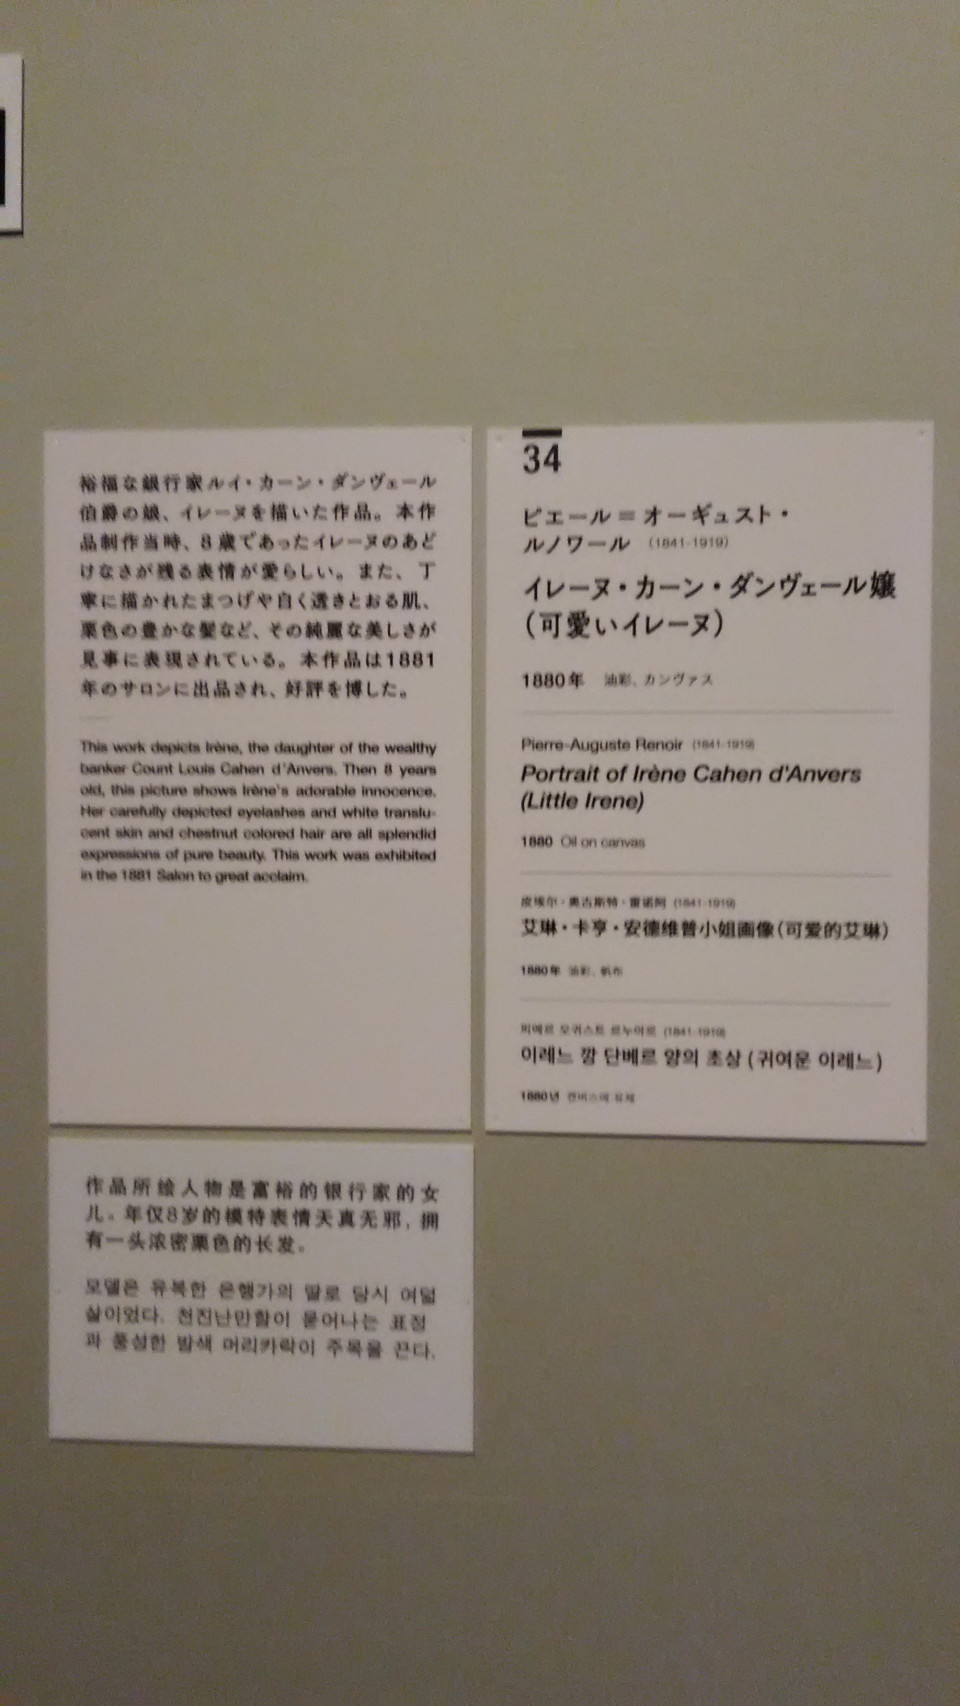 裕福な銀行家ルイ・カーン・ダンヴェール
伯爵の娘、イレーヌを描いた作品。本作
品制作当時、8歳であったイレーヌのあど
けなさが残る表情が愛らしい。また、丁
寧に描かれたまつげや白く透きとおる肌、
栗色の豊かな髪など、その純麗な美しさが
見事に表現されている。本作品は1881
年のサロンに出品され、好評を博した。
This work depicts Irène, the daughter of the wealthy
banker Count Louis Cahen d'Anvers. Then 8 years
old, this picture shows Irène's adorable innocence.
Her carefully depicted eyelashes and white translu-
cent skin and chestnut colored hair are all splendid
expressions of pure beauty. This work was exhibited
in the 1881 Salon to great acclaim.
作品所绘人物是富裕的银行家的女
儿。年仅8岁的模特表情天真无邪，拥
有一头浓密栗色的长发。
모델은 유복한 은행가의 딸로 당시 여덟
살이었다. 천진난만함이 묻어나는 표정
과 풍성한 밤색 머리카락이 주목을 끈다.
34
ピエール＝オーギュスト・
ルノワール （1841-1919）
イレーヌ・カーン・ダンヴェール嬢
（可愛いイレーヌ）
1880年 油彩、カンヴァス
Pierre-Auguste Renoir (1841-1919)
Portrait of Irène Cahen d'Anvers
(Little Irene)
1880 Oil on canvas
皮埃尔・奥古斯特・雷诺阿 (1841-1919)
艾琳・卡亨・安德维普小姐画像（可爱的艾琳）
1880年 油彩、帆布
피에르 오귀스트 르누아르 (1841-1919)
이레느 깡 단베르 양의 초상 (귀여운 이레느)
1880년 캔버스에 유채